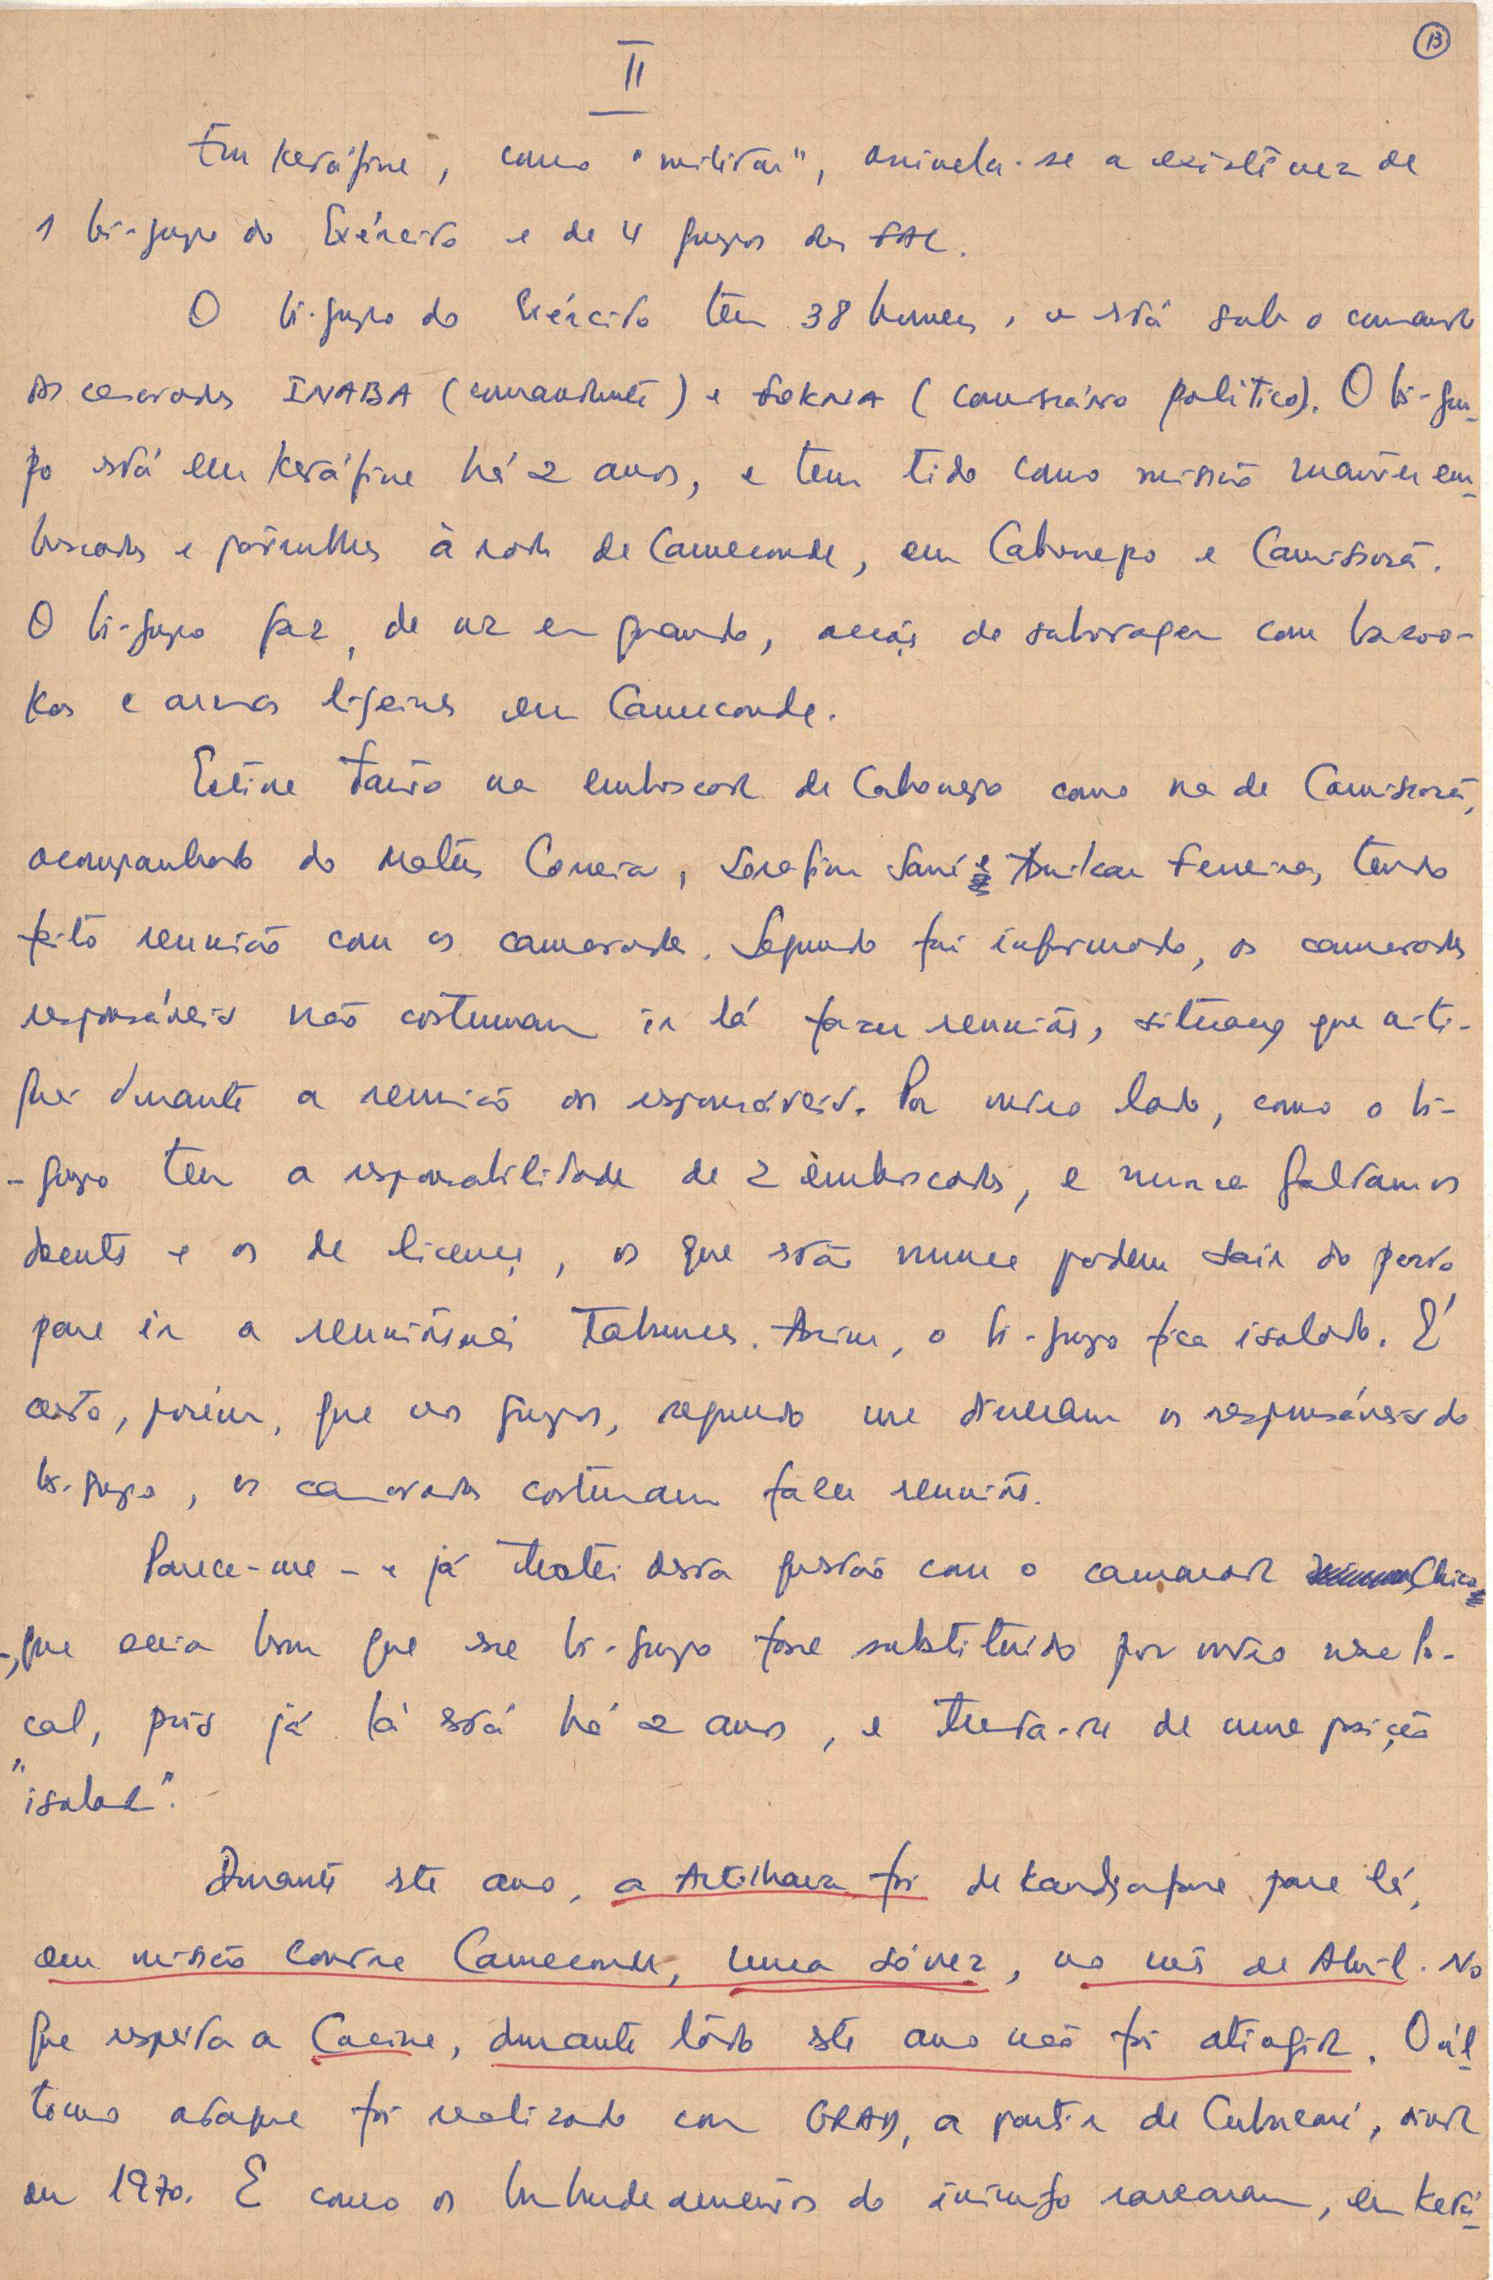 13
II
Em Ketáfine, como "militar", assinala-se a existência de
1 bi-grupo do Exército e de 4 grupos das FAL.
O bi-grupo do Exército tem 38 homens, e está sob o comando
dos camaradas INABA (comandante) e (comissário político). O bi-gru-
po está em Ketáfine há 2 anos, e tem tido como missão manter em-
boscadas e patrulhas à roda de Cameconde, em Cabonepo e Camissorã.
O bi-grupo faz, de vez em quando, acções de sabotagem com bazoo-
kas e armas ligeiras em Cameconde.
Estive tanto na emboscada de Cabonepo como na de Camissorã,
acompanhado do Mateus Correia, Serafim Sani e Amilcar Ferreira, tendo
feito reunião com os camaradas. Segundo fui informado, os camaradas
responsáveis não costumam ir lá fazer reuniões, situação que criti-
quei durante a reunião os responsáveis. Por outro lado, como o bi-
-grupo tem a responsabilidade de 2 emboscadas, e nunca faltam os
doentes e os de licença, os que estão nunca podem sair do posto
para ir a reuniões nas Tabancas. Assim, o bi-grupo fica isolado. É
certo, porém, que nos grupos, segundo me disseram os responsáveis do
bi-grupo, os camaradas costumam fazer reuniões.
Parece-me - e já tratei desta questão com o camarada Chico
-, que seria bom que esse bi-grupo fosse substituído por outro nesse lo-
cal, pois já lá está há 2 anos, e trata-se de uma posição
"isolada".
Durante este ano, a Artilharia foi de Kandjafara para lá,
em missão contra Cameconde, uma só vez, no mês de Abril. No
que respeita a Cacine, durante todo este ano não foi atingida. O úl-
timo ataque foi realizado com GRAD, a partir de Cubucaré, ainda
em 1970. E como os bombardeamentos do inimigo rarearam, em Ketá-